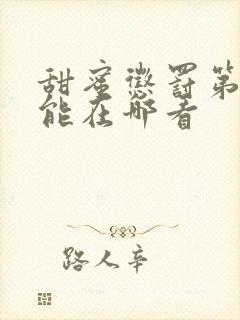 甜蜜惩罚第
能在哪看
路人辛